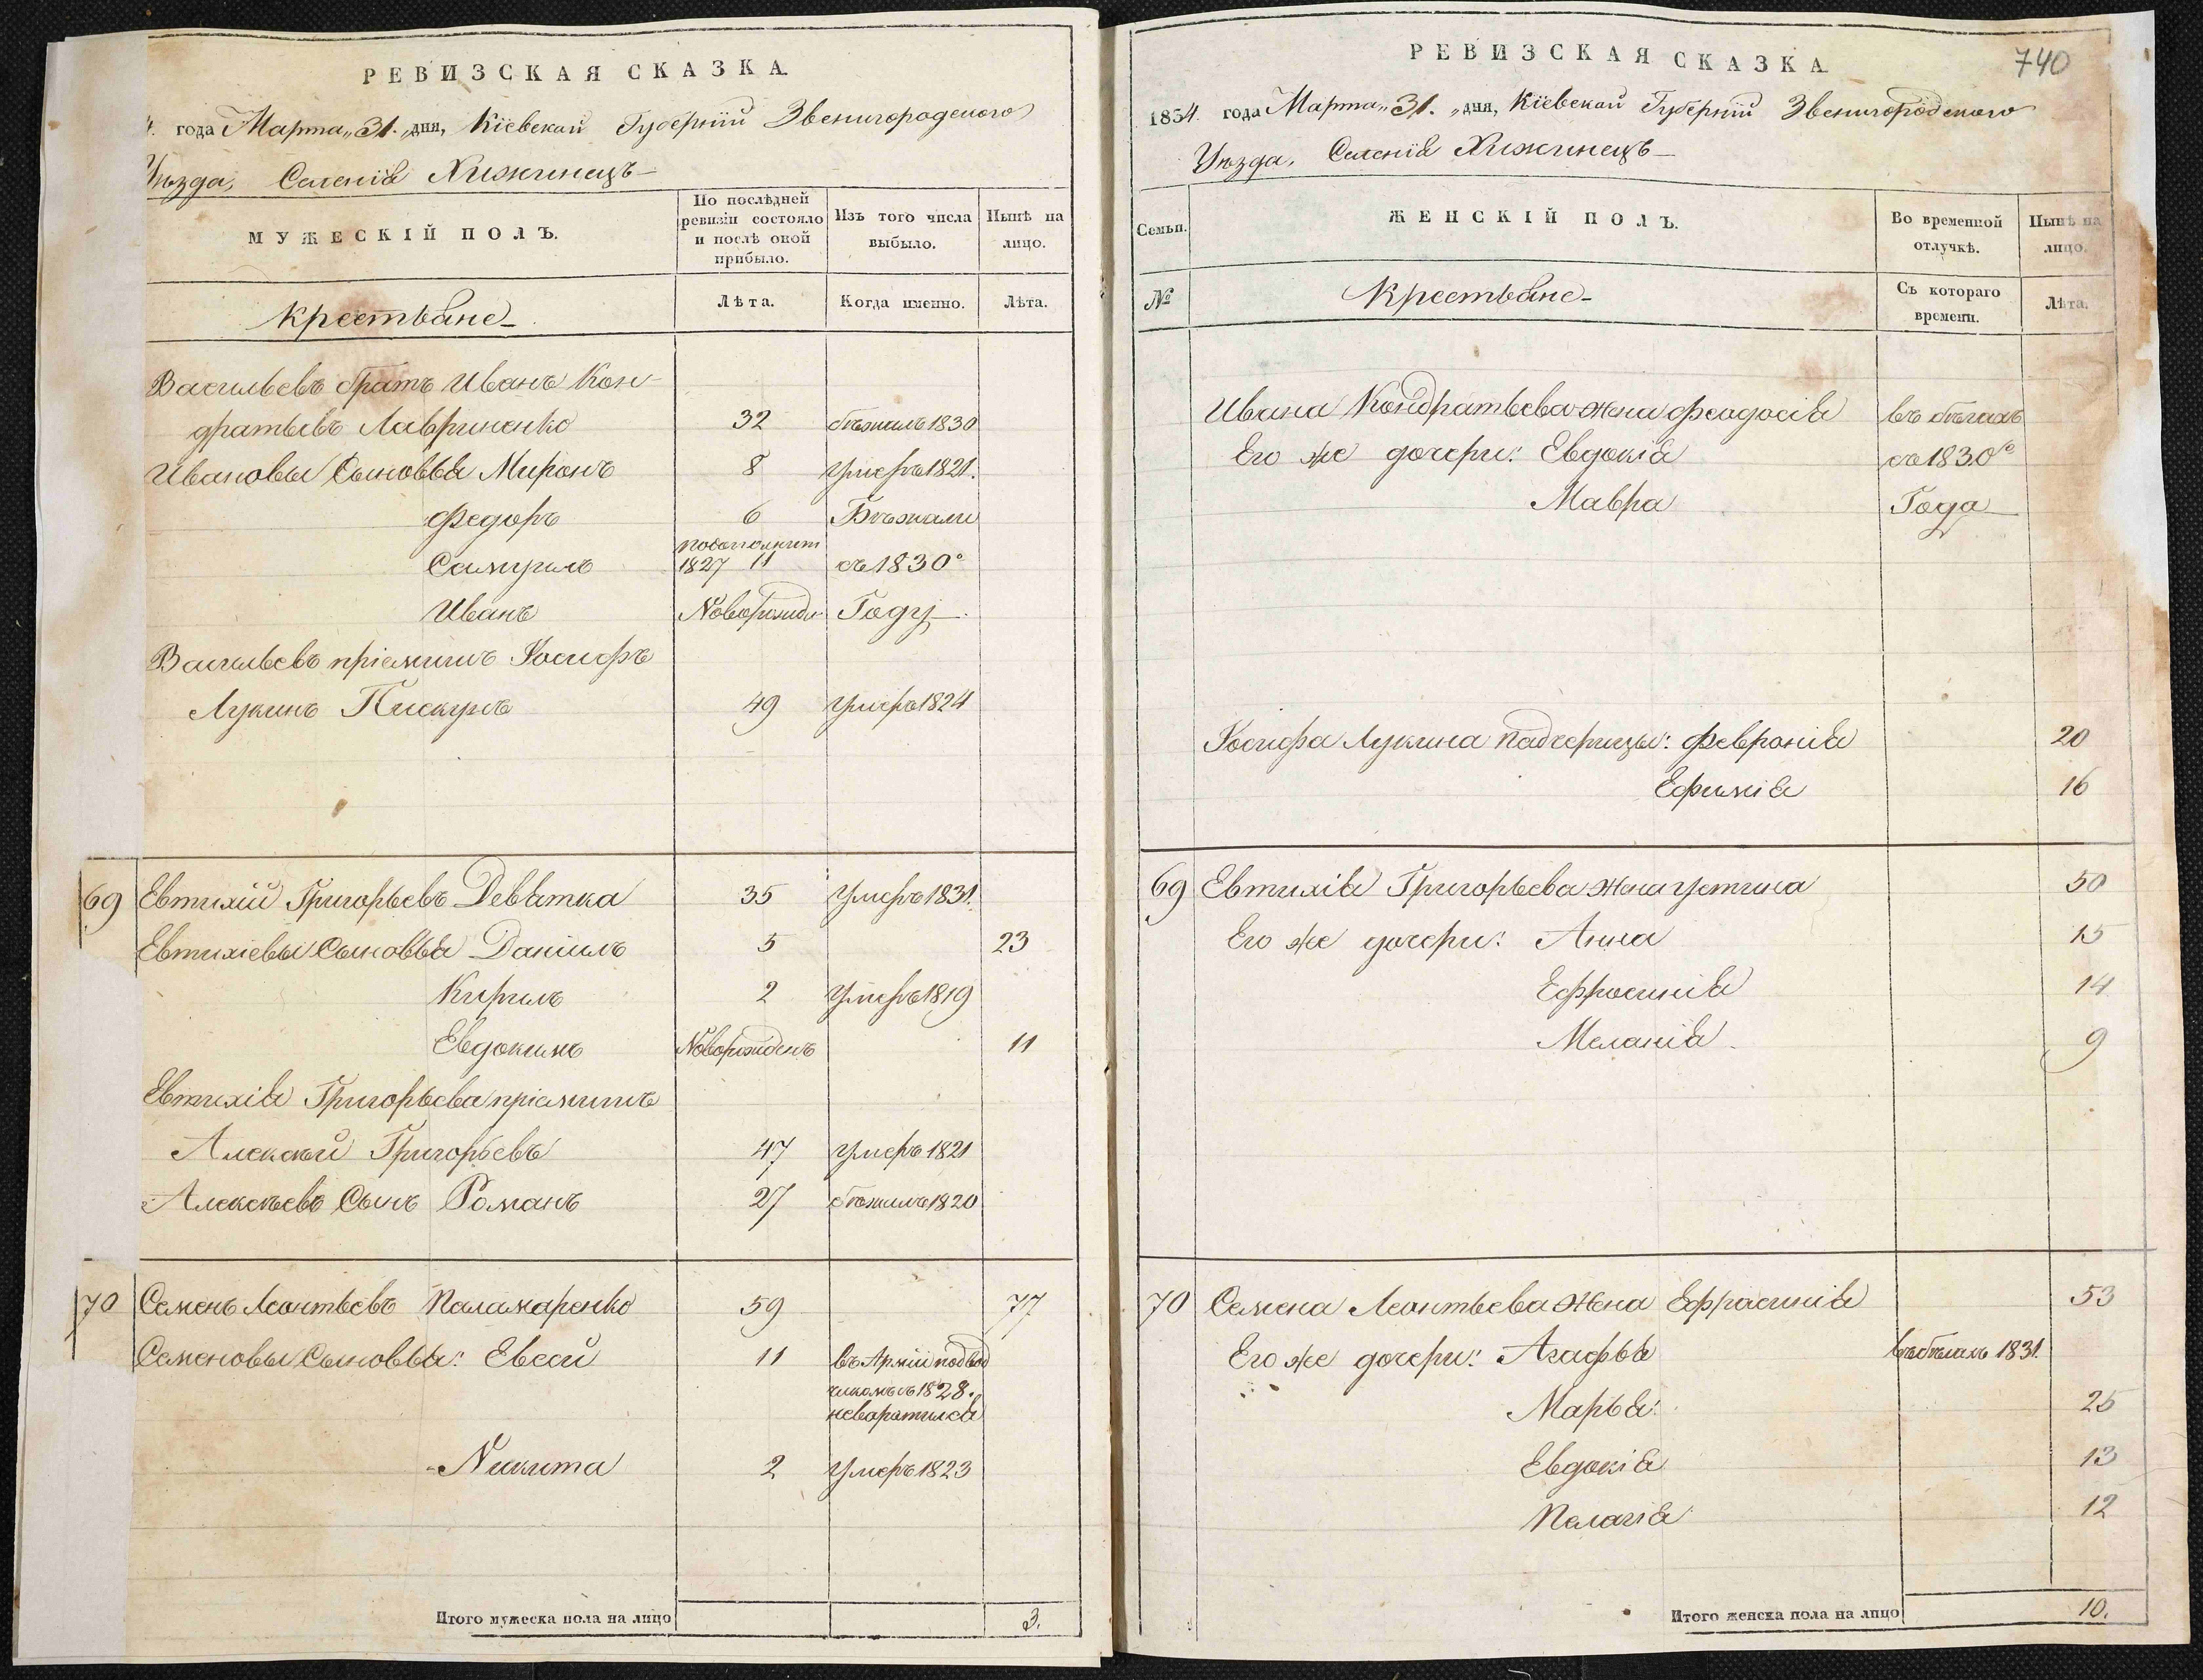 РЕВИЗСКАЯ СКАЗКА.
4. года Марта „31." дня, Кіевской Губерніи Звенигородского
Уѣзда, Селенія Хижинецъ
МУЖЕСКІЙ ПОЛЪ.
По послѣдней ревизіи состояло и послѣ оной прибыло.
Изъ того числа выбыло.
Нынѣ на лицо.
Крестьяне
Лѣта.
Когда именно.
Лѣта.
Васильевъ братъ Иванъ Кон-
дратьевъ Лавриненко 32 бѣжалъ 1830
Ивановы Сыновья Миронъ 8 умеръ 1821.
Федоръ 6 Бѣжали
Самуилъ 1827 11 съ 1830°
Иванъ Новорожд. Году
Васильевъ пріемышъ Іосифъ
Лукинъ Пискунъ 49 умеръ 1824
69 Евтихій Григорьевъ Девятка 35 умеръ 1831.
Евтихіевы Сыновья Даніилъ 5 23
Кирилъ 2 умеръ 1819
Евдокимъ Новорожденъ 11
Евтихія Григорьева пріемышъ
Алексѣй Григорьевъ 47 умеръ 1821
Алексѣевъ Сынъ Романъ 27 бѣжалъ 1820
70 Семенъ Леонтьевъ Паламаренко 59 77
Семеновы Сыновья: Евсей 11 въ Арміи подвод
чикомъ съ 1828.
неворатился
Никита 2 умеръ 1823
Итого мужеска пола на лицо 3.
РЕВИЗСКАЯ СКАЗКА
740
1834. года Марта „31." дня, Кіевской Губерніи Звенигородского
Уѣзда, Селенія Хижинецъ
Семьи.
ЖЕНСКІЙ ПОЛЪ.
Во временной отлучкѣ.
Нынѣ на лицо.
№
Крестьяне
Съ котораго времени.
Лѣта.
Ивана Кондратьева жена Феодосія въ бѣгахъ
Его же дочери: Евдокія съ 1830го
Мавра Года
Іосифа Лукина падчерицы: Февронія 20
Ефимія 16
69 Евтихія Григорьева жена Устина 50
Его же дочери: Анна 15
Ефросинія 14
Меланія 9
70 Семена Леонтьева Жена Ефросинія 53
Его же дочери: Агафья въ бѣгахъ 1831.
Марья: 25
Евдокія 13
Пелагія 12
Итого женска пола на лицо 10.